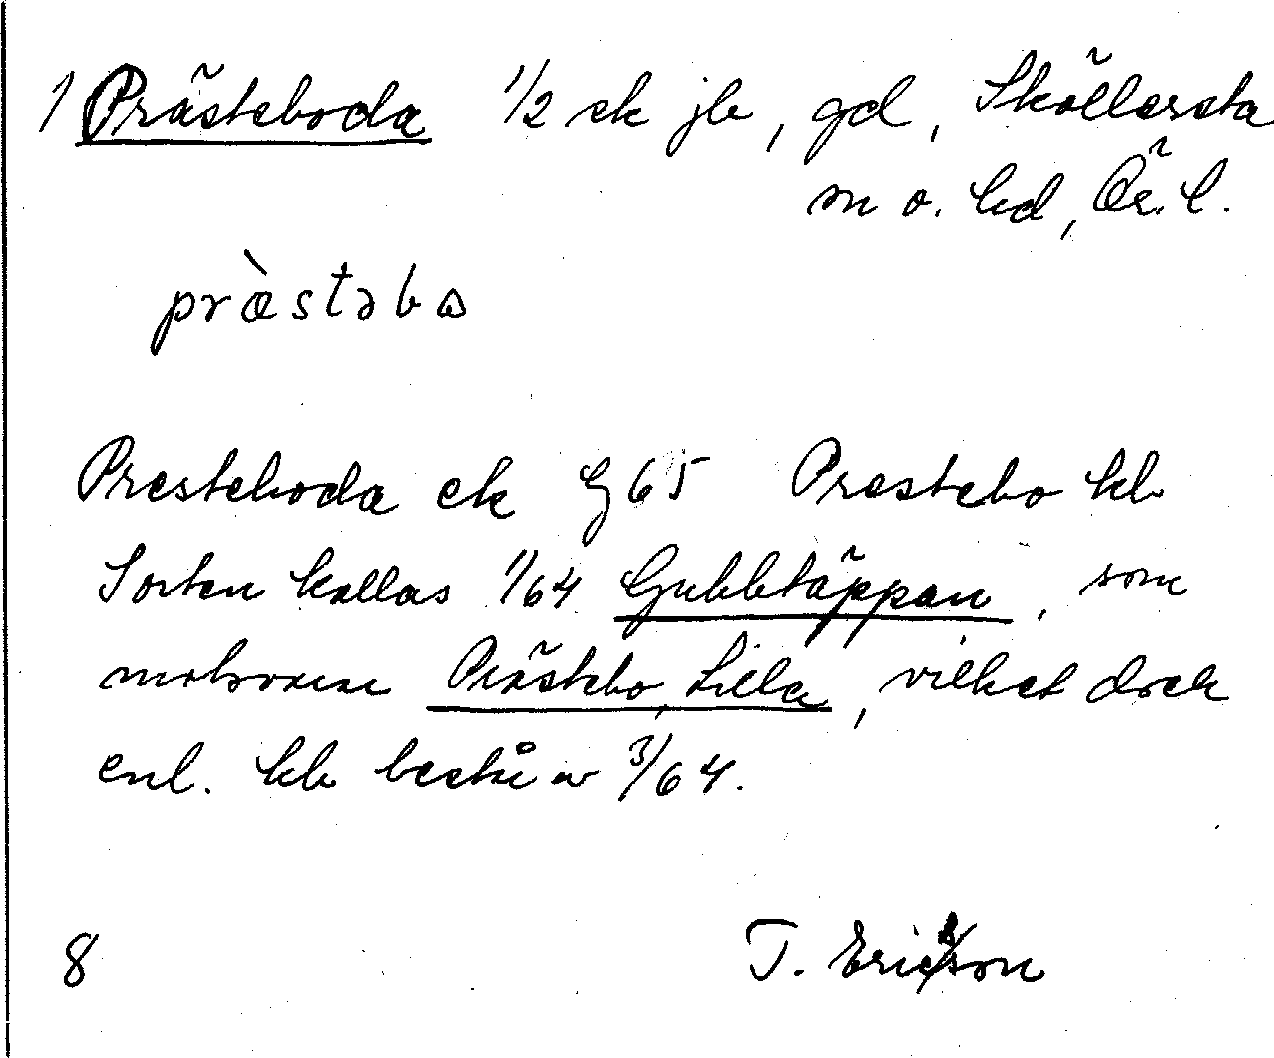 1 Prästeboda 1/2 ek jb, gd, Sköllersta
m o. hd, Ör. l.
præ̀stəbɷ
Prestehoda ek G 65 Prestebo kb
Jorten kallas 1/64 Gubbtäppan, som
motsvarar Prästebo, Lilla, vilket dock
enl. kb bestå av 3/64.
8 T. Ericsson